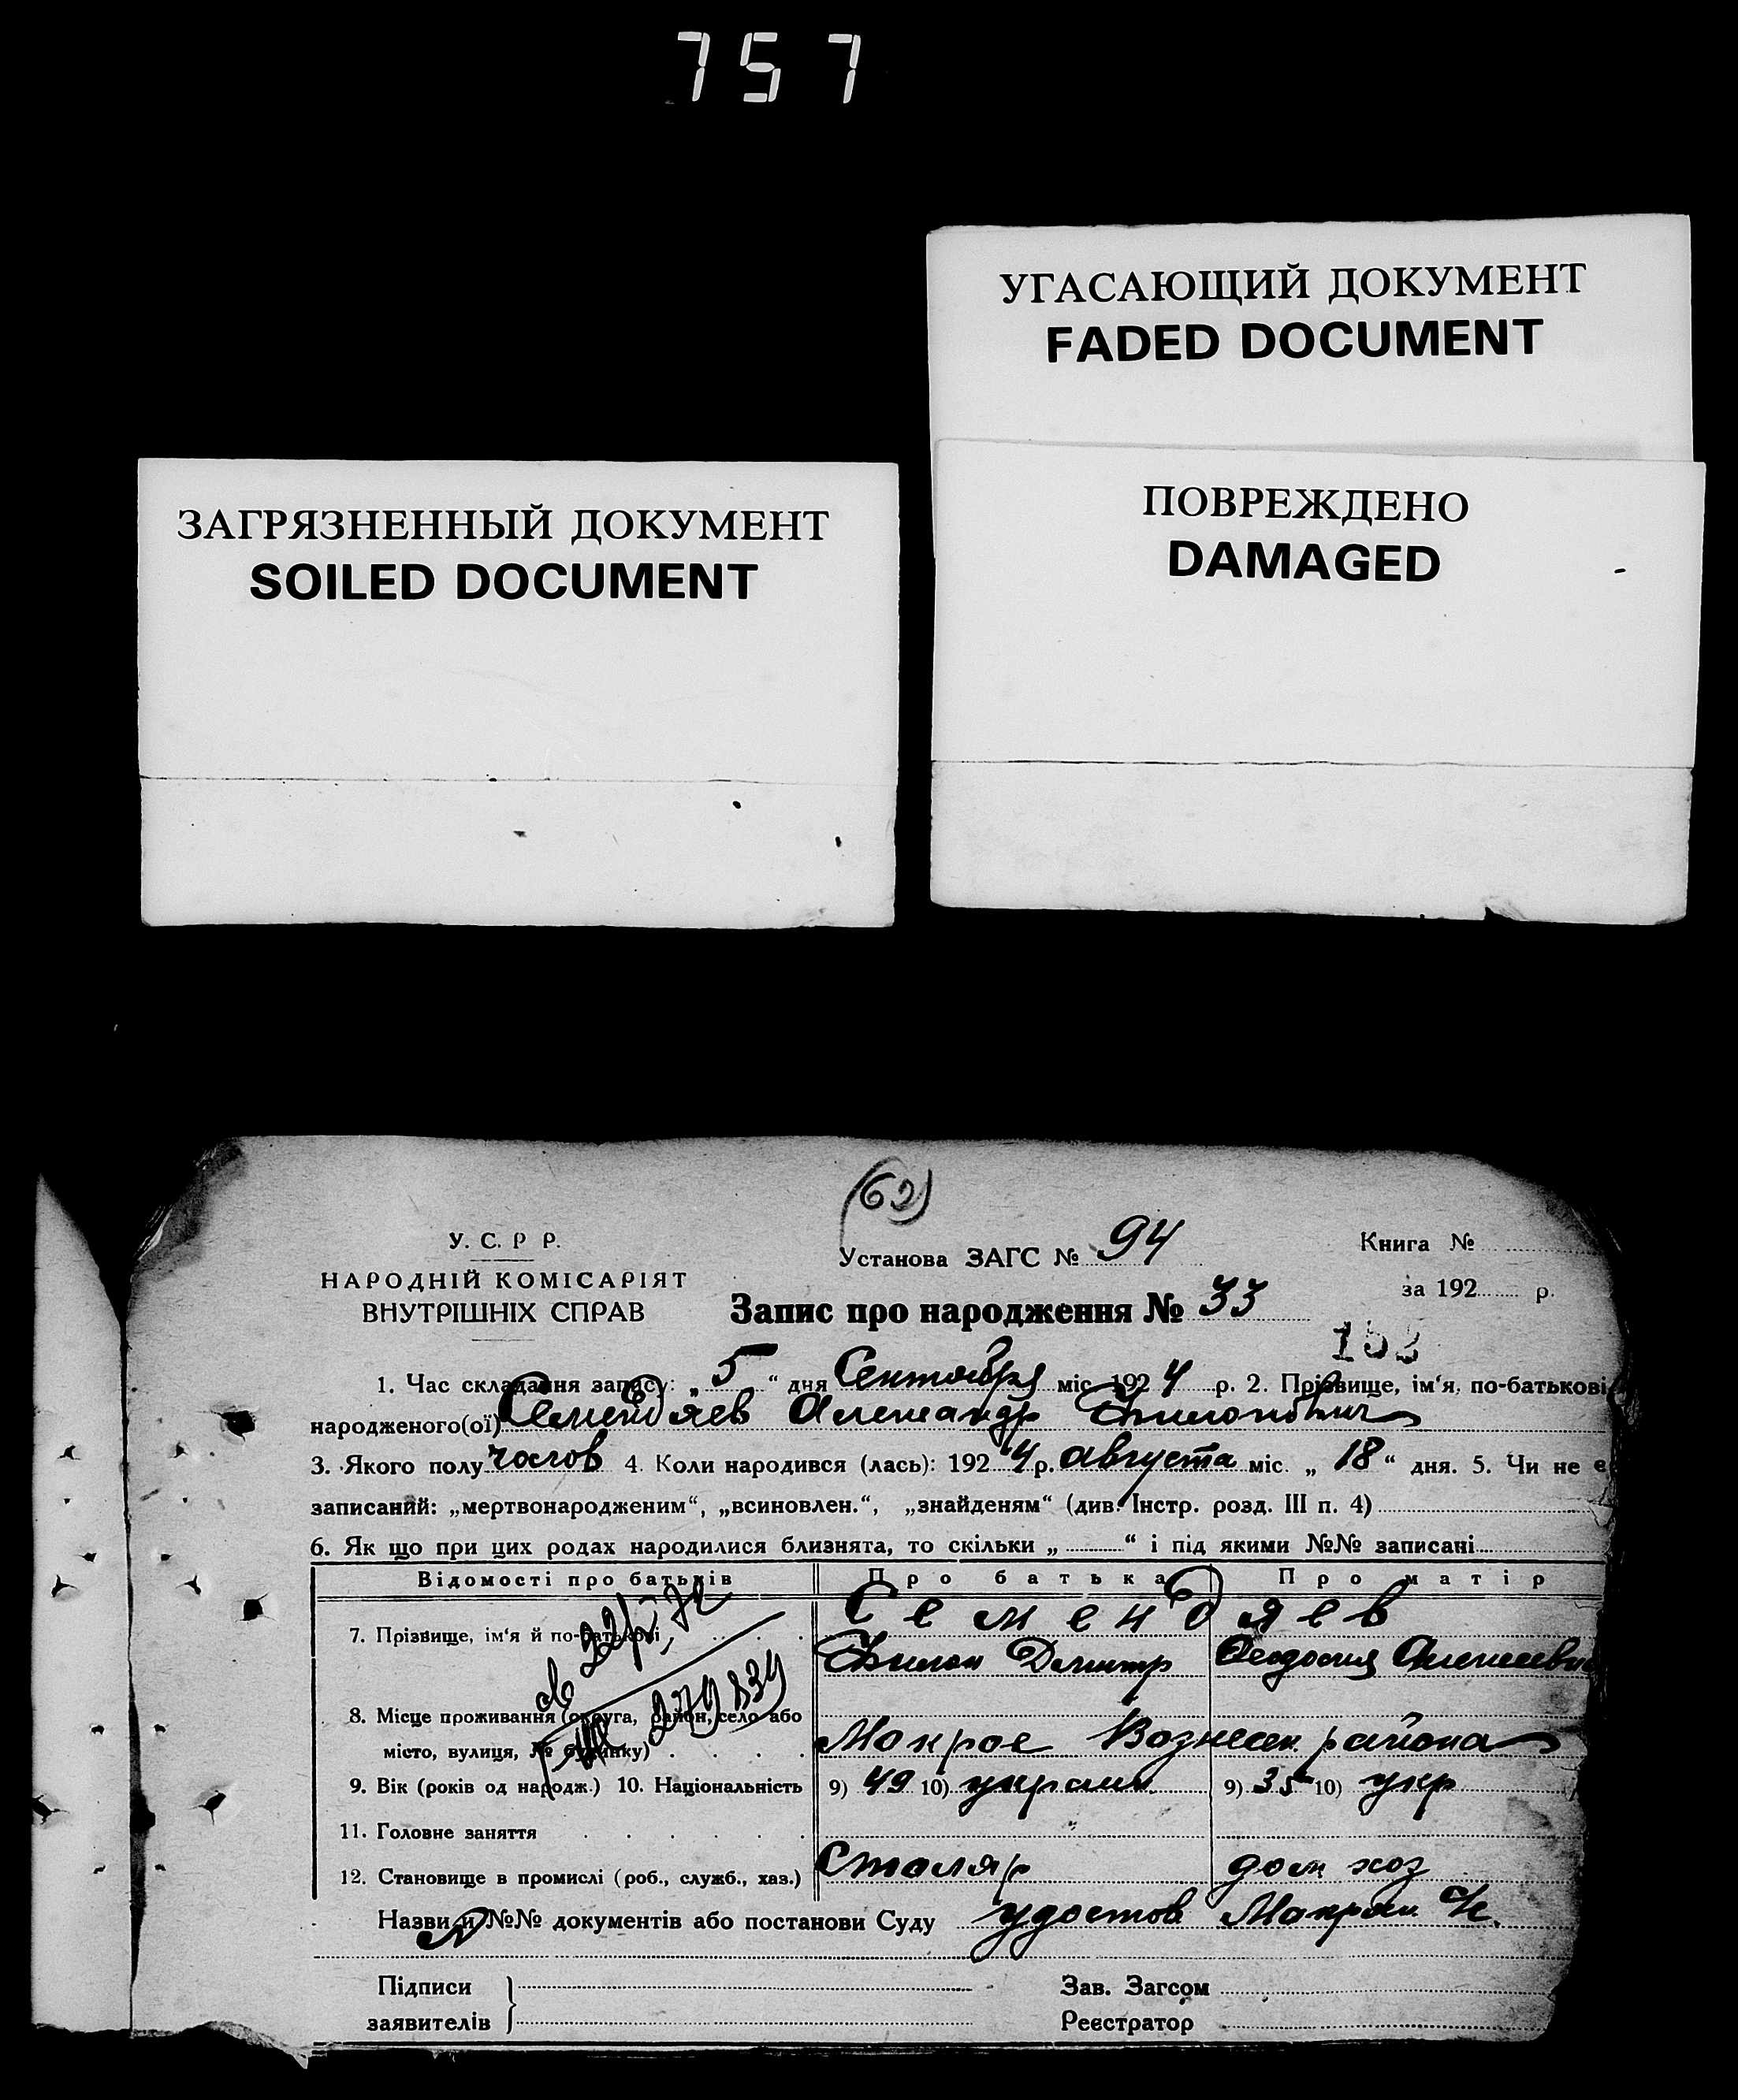 757
УГАСАЮЩИЙ ДОКУМЕНТ
FADED DOCUMENT
ЗАГРЯЗНЕННЫЙ ДОКУМЕНТ
SOILED DOCUMENT
ПОВРЕЖДЕНО
DAMAGED
(62)
У. С. Р Р.
НАРОДНІЙ КОМІСАРІЯТ
ВНУТРІШНІХ СПРАВ
Установа ЗАГС № 94
Книга №
за 192 р.
Запис про народження № 33
1. Час складання запису: „5“ дня Сентября міс. 1924 р. 2. Прізвище, ім‘я, по-батькові
народженого(ої) Семендяев Александр
3. Якого полу 4. Коли народився (лась): 1924 р. августа міс. „18“ дня. 5. Чи не є
записаний: „мертвонародженим“, „всиновлен.“, „знайденям“ (див. Інстр. розд. III п. 4)
6. Як що при цих родах народилися близнята, то скільки „ “ і під якими №№ записані
Відомості про батьків Про батька Про матір
Семендяев
7. Прізвище, ім‘я й по-батькові
Дмитр Феодосия Алексеевна
8. Місце проживання (округа, район, село або
місто, вулиця, № будинку) Мокрое Вознесен. района
9. Вік (років од народж.) 10. Національність 9) 49 10) украин 9) 35 10) укр
11. Головне заняття
12. Становище в промислі (роб., служб., хаз.) Столяр дом хоз
Назви й №№ документів або постанови Суду удостов Мокрян
Підписи
заявителів
Зав. Загсом
Реєстратор